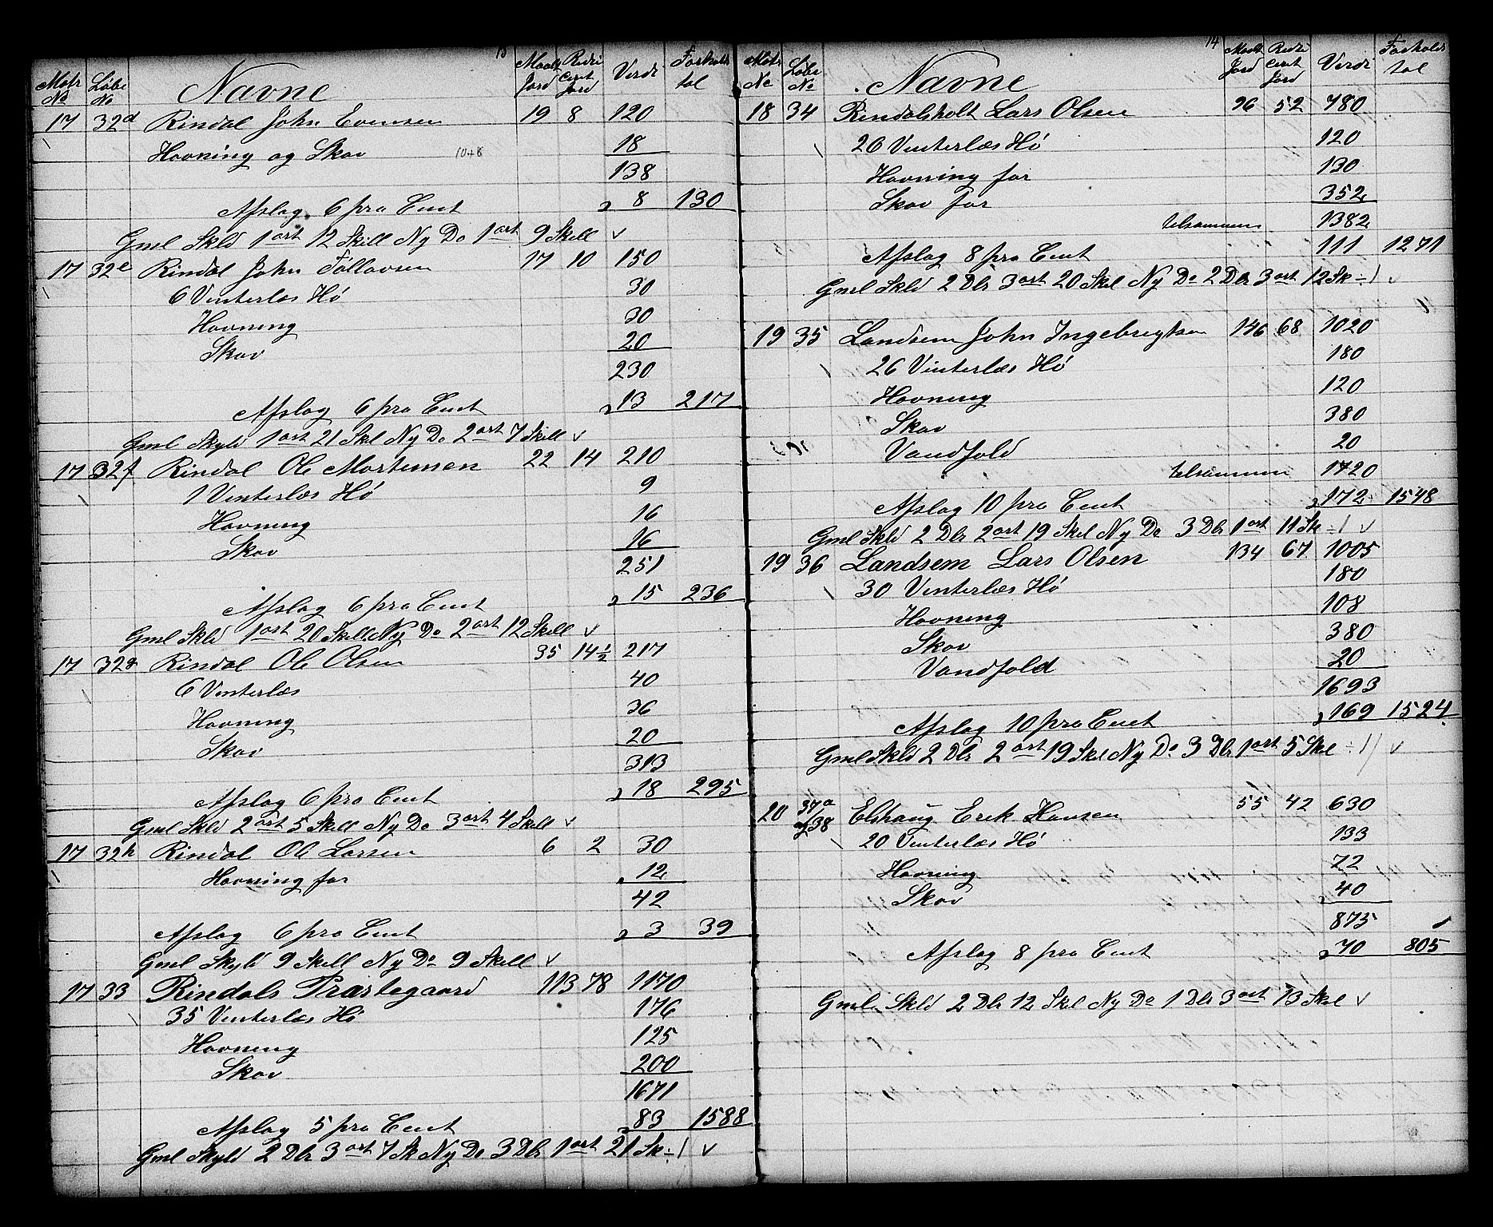 13
Matr No Løbe No Navne Maal Jord Redu cert Jord Verdi Forholds tal
17 32d Rindal John Evensen 19 8 120
Havning og Skov 10+8 18
138
Afslag 6 pro Cent 8 130
Gml Skld 1 ort 12 Skill Ny Do 1 ort 9 Skill √
17 32e Rindal John Tollovsen 17 10 150
6 Vinterlæs Hø 30
Havning 30
Skov 20
230
Afslag 6 pro Cent 13 217
Gml Skyld 1 ort 21 Skl Ny Do 2 ort 7 Skill √
17 32f Rindal Ole Mortensen 22 14 210
1 Vinterlæs Hø 9
Havning 16
Skov 16
251
Afslag 6 pro Cent 15 236
Gml Skld 1 ort 20 Skill Ny Do 2 ort 12 Skill √
17 32g Rindal Ole Olsen 35 14½ 217
6 Vinterlæs 40
Havning 36
Skov 20
313
Afslag 6 pro Cent 18 295
Gml Skld 2 ort 5 Skill Ny Do 3 ort 4 Skill √
17 32h Rindal Ole Larsen 6 2 30
Havning for 12
42
Afslag 6 pro Cent 3 39
Gml Skyld 9 Skill Ny Do 9 Skill √
17 33 Rindals Præstegaard 113 78 1170
35 Vinterlæs Hø 176
Havning 125
Skov 200
1671
Afslag 5 pro Cent 83 1588
Gml Skyld 2 Dlr 3 ort 7 Sk Ny Do 3 Dlr 1 ort 21 Sk ÷1 √
14
Matr No Løbe No Navne Maal Jord Redu cert Jord Verdi Forholds tal
18 34 Rindalsholt Lars Olsen 96 52 780
20 Vinterlæs Hø 120
Havning for 130
Skov for 352
tilsammen 1382
Afslag 8 pro Cent 111 1271
Gml Skld 2 Dlr 3 ort 20 Skl Ny Do 2 Dlr 3 ort 12 Sk ÷1 √
19 35 Landsem John Ingebrigtsen 146 68 1020
26 Vinterlæs Hø 180
Havning 120
Skov 380
Vandfald 20
tilsammen 1720
Afslag 10 pro Cent 172 1548
Gml Skld 2 Dlr 2 ort 19 Skl Ny Do 3 Dlr 1 ort 11 Sk ÷1 √
19 36 Landsem Lars Olsen 134 67 1005
30 Vinterlæs Hø 180
Havning 108
Skov 380
Vandfald 20
1693
Afslag 10 pro Cent 169 1524
Gml Skld 2 Dlr 2 ort 19 Skl Ny Do 3 Dlr 1 ort 5 Skl ÷1 √
20 37a og 38 Elshaug Erik Hansen 55 42 630
20 Vinterlæs Hø 133
Havning 72
Skov 40
875
Afslag 8 pro Cent 70 805
Gml Skld 2 Dlr 12 Skl Ny Do 1 Dlr 3 ort 13 Skl √